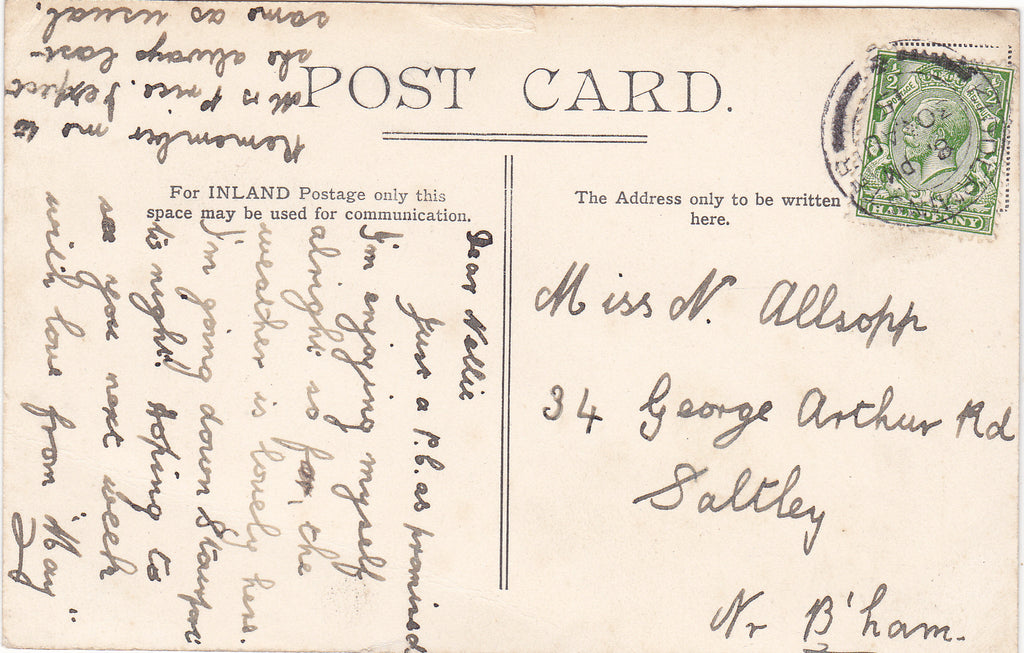 POST CARD.
For INLAND Postage only this
space may be used for communication.
The Address only to be written
here.
HALFPENNY
Dear Nellie
Just a P.C. as promised
I'm enjoying myself
alright so far, the
weather is lovely here.
I'm going down
to night. Hoping to
see you next week
with love from "May"
Remember me to
she always
same as usual.
Miss N. Allsopp
34 George Arthur Rd
Saltley
Nr B'ham.